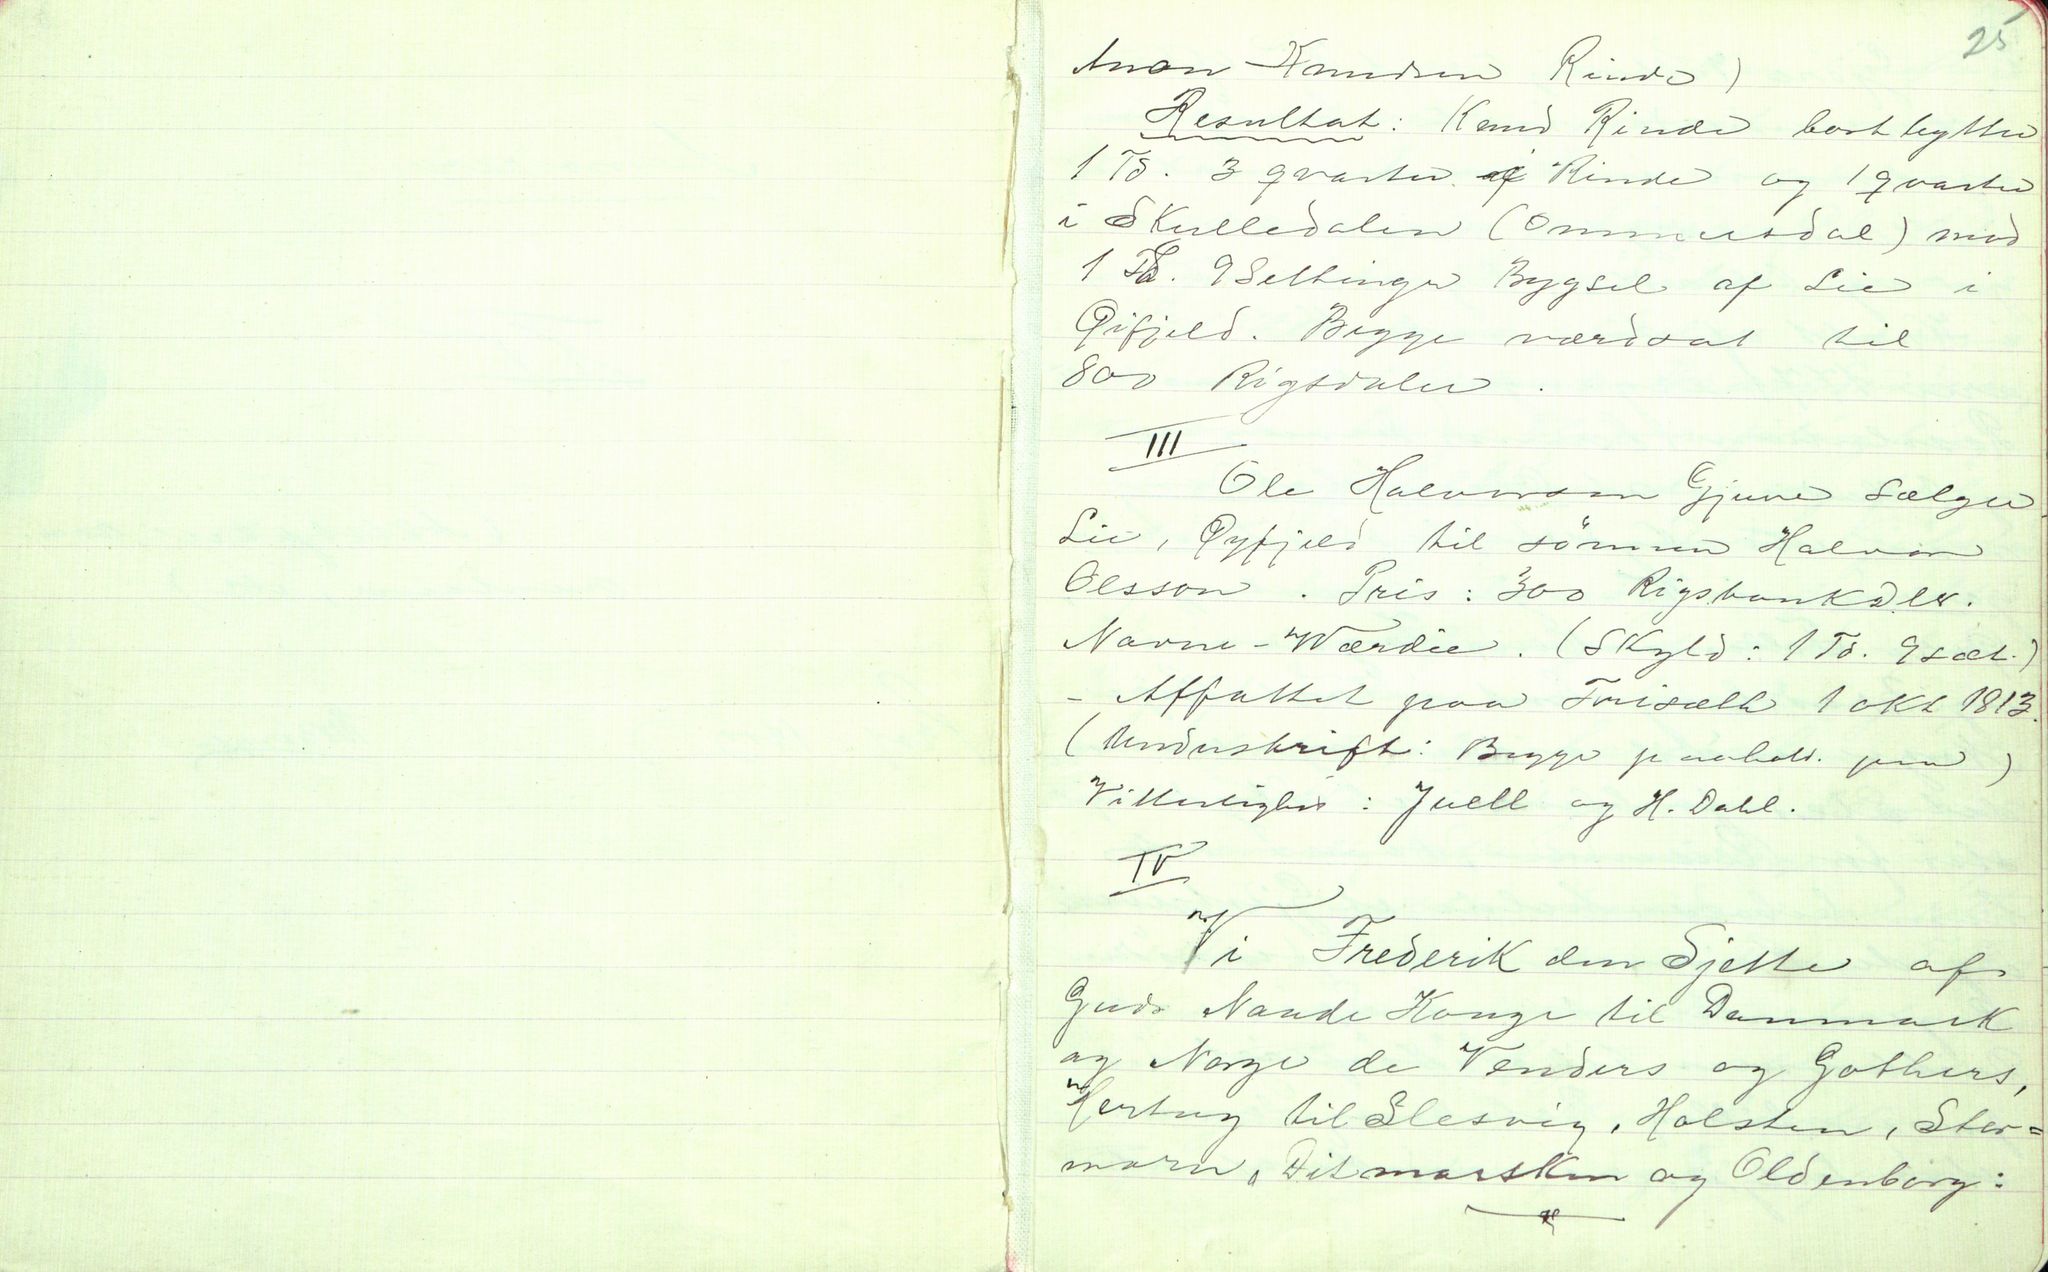 25
Anon Knudsen Rinde)
Resultat: Knud Rinde bortbytte
1 Td. 3 qvarter af Rinde og 1 qvarter
i Skulledalen (Ommersdal) mod
1 Td. 9 Settinger Bygsel af Lie i
Øifjeld. Begge værdsat til
800 Rigsdaler.
III
Ole Halvorsen Gjuve sælger
Lie, Øyfjeld til sönnen Halvor
Olsson. Pris: 300 Rigsbankdlr.
Navne-Værdie. (Skyld: 1 Td. 9 sæt.)
- Affattet paa Triset 1 okt 1813.
(Underskrift: Begge p aahold. pen)
Vitterlighed: Juell og H. Dahl.
IV
Vi Frederik den Sjette af
Guds Naade Konge til Danmark
og Norge de Venders og Gothers,
Hertug til Slesvig, Holsten, Stor=
marn, Ditmarsken og Oldenborg: